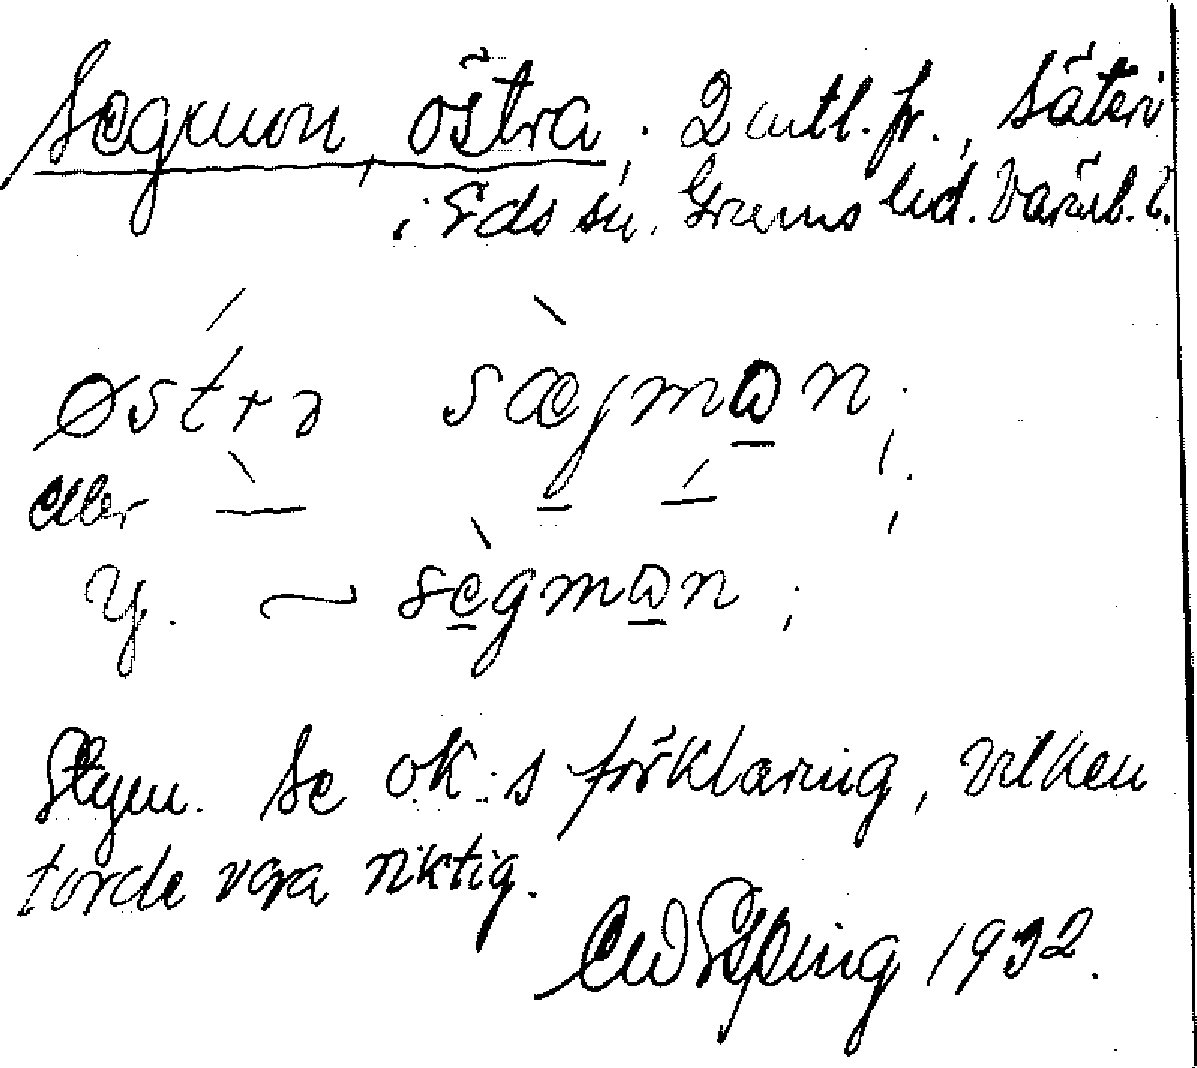 Segmon, östra, 2 mtl. fr., säteri
i Eds sn. Grums hd. Värml. l.
østrə sægmωn;
eller
y. ~ segmωn;
Etym. Se OK:s förklaring, vilken
torde vara riktig.
1932.